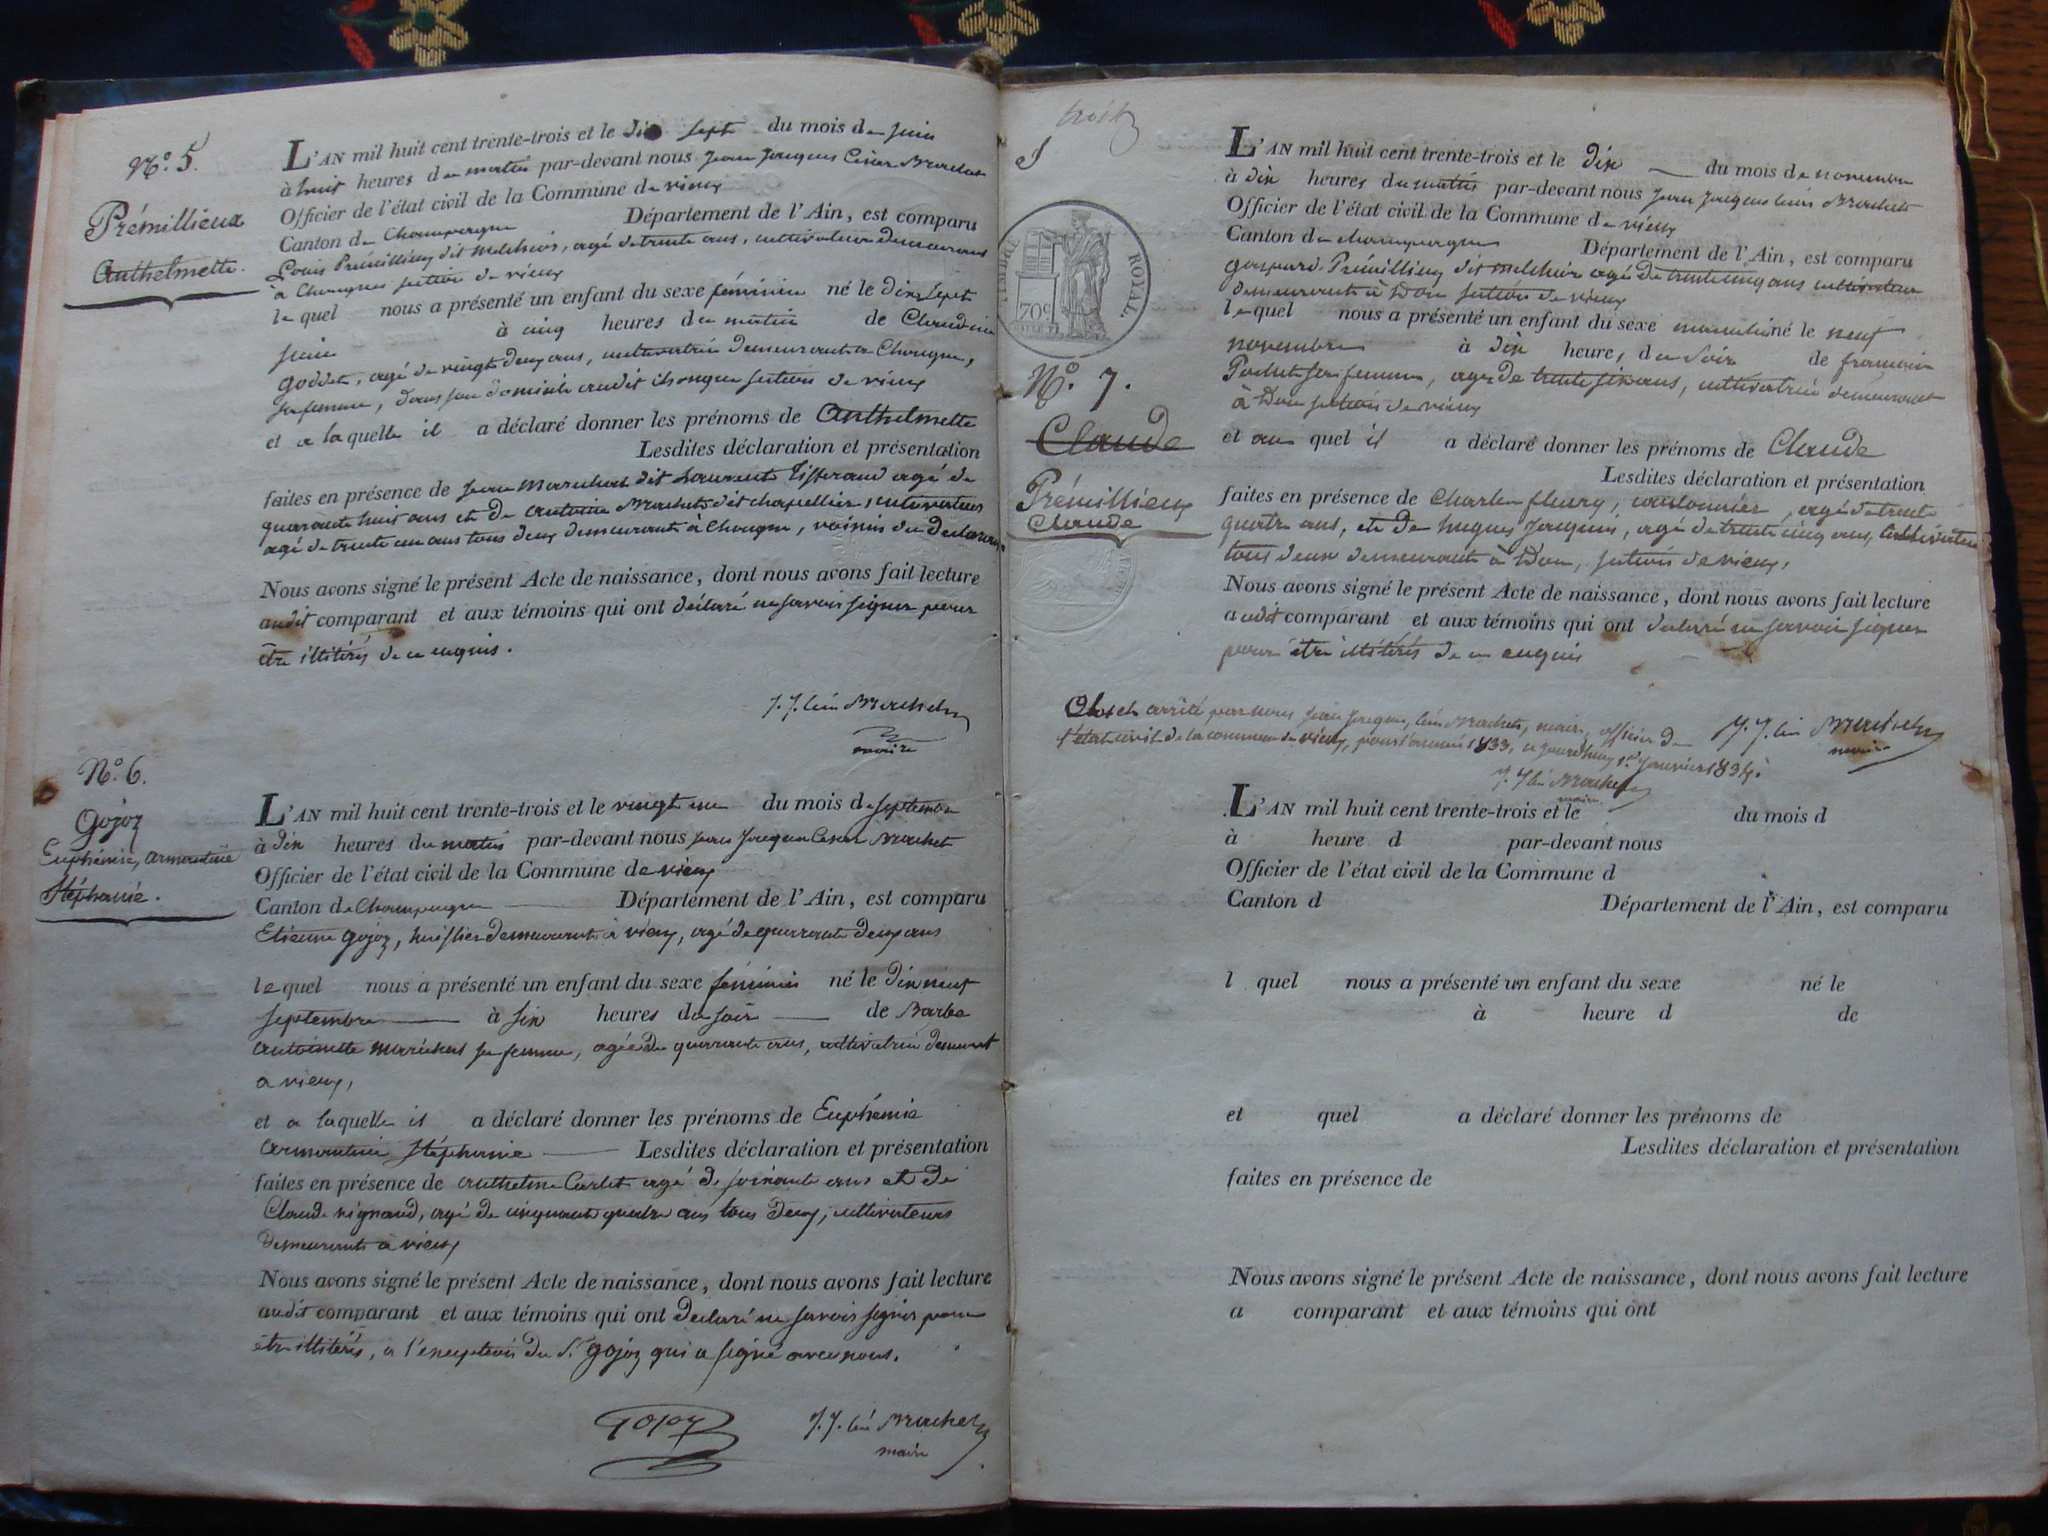 N.° 5.
Prémillieux
Anthelmette.
L'AN mil huit cent trente-trois et le dix sept du mois de juin
à huit heures du matin par-devant nous jean jacques César Machet
Officier de l'état civil de la Commune de vieux
Canton de Champagne Département de l'Ain, est comparu
Louis Prémillieux dit melchior, agé de trente ans, cultivateur demeurant
à Chongnes section de vieux
le quel nous a présenté un enfant du sexe féminin né le dix sept
juin à cinq heures du matin de Claudine
goddet, agé de vingt deux ans, cultivatrice demeurant a Chongne,
sa femme, dans son domicile audit chongne section de vieux
et a laquelle il a déclaré donner les prénoms de Anthelmette
Lesdites déclaration et présentation
faites en présence de jean marechal dit Laurent tisserand agé de
quarante huit ans et de antoine Machet dit chapellier, cultivateur
agé de trente un ans tous deux demeurant à Chongne, voisins du declarant
Nous avons signé le présent Acte de naissance, dont nous avons fait lecture
audit comparant et aux témoins qui ont déclaré ne savoir signer pour
être illitérés de ce enquis.
J. J. Machet
maire
N.° 6.
Gojoz
Euphémie, armantine
Stéphanie.
L'AN mil huit cent trente-trois et le vingt un du mois de septembre
à dix heures du matin par-devant nous jean Jacques Cesar Machet
Officier de l'état civil de la Commune de vieux
Canton de Champagne Département de l'Ain, est comparu
Etienne gojoz, huissier demeurant à vieux, agé de quarante deux ans
le quel nous a présenté un enfant du sexe féminin né le dix neuf
septembre à six heures du soir de Barbe
antoinette maréchal sa femme, agée de quarante ans, cultivatrice demeurant
a vieux,
et a laquelle il a déclaré donner les prénoms de Euphémie
armantine Stéphanie Lesdites déclaration et présentation
faites en présence de anthelme Carlet agé de soixante ans et de
Claude vignaud, agé de cinquante quatre ans tous deux, cultivateurs
demeurants a vieux
Nous avons signé le présent Acte de naissance, dont nous avons fait lecture
audit comparant et aux témoins qui ont déclaré ne savoir signer pour
être illitérés, a l'exception du S.r gojoz qui a signé avec nous.
Gojoz
J. J. Machet
maire
trois
ROYAL.
70c
N.° 7.
Claude
Prémillieux
Claude
L'AN mil huit cent trente-trois et le dix du mois de novembre
à dix heures du matin par-devant nous jean jacques César Machet
Officier de l'état civil de la Commune de vieux
Canton de champagne Département de l'Ain, est comparu
gaspard Prémillieux dit melchior agé de trente cinq ans cultivateur
demeurant à Don section de vieux
le quel nous a présenté un enfant du sexe masculin né le neuf
novembre à dix heures du soir de françoise
Pochet sa femme, agée de trente six ans, cultivatrice demeurant
à Don section de vieux
et au quel il a déclaré donner les prénoms de Claude
Lesdites déclaration et présentation
faites en présence de Charles fleury, agé de trente
quatre ans, et de hugues Jacques, agé de trente cinq ans, cultivateur
tous deux demeurant à Don, section de vieux,
Nous avons signé le présent Acte de naissance, dont nous avons fait lecture
audit comparant et aux témoins qui ont déclaré ne savoir signer
pour être illitérés de ce enquis
Clos et arrêté par nous jean jacques César Machet, maire, officier de
l'état civil de la commune de vieux, pour l'année 1833, ce jourd'hui 1.er janvier 1834.
J. J. Machet
maire
J. J. Machet
maire
L'AN mil huit cent trente-trois et le du mois d
à heure d par-devant nous
Officier de l'état civil de la Commune d
Canton d Département de l'Ain, est comparu
l quel nous a présenté un enfant du sexe né le
à heure d de
et quel a déclaré donner les prénoms de
Lesdites déclaration et présentation
faites en présence de
Nous avons signé le présent Acte de naissance, dont nous avons fait lecture
a comparant et aux témoins qui ont